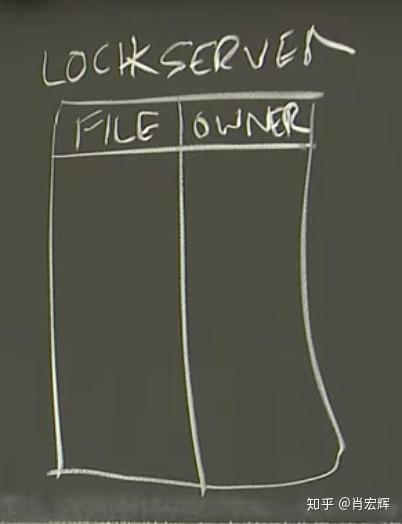 LOCKSERVER
FILE OWNER
知乎 @肖宏辉